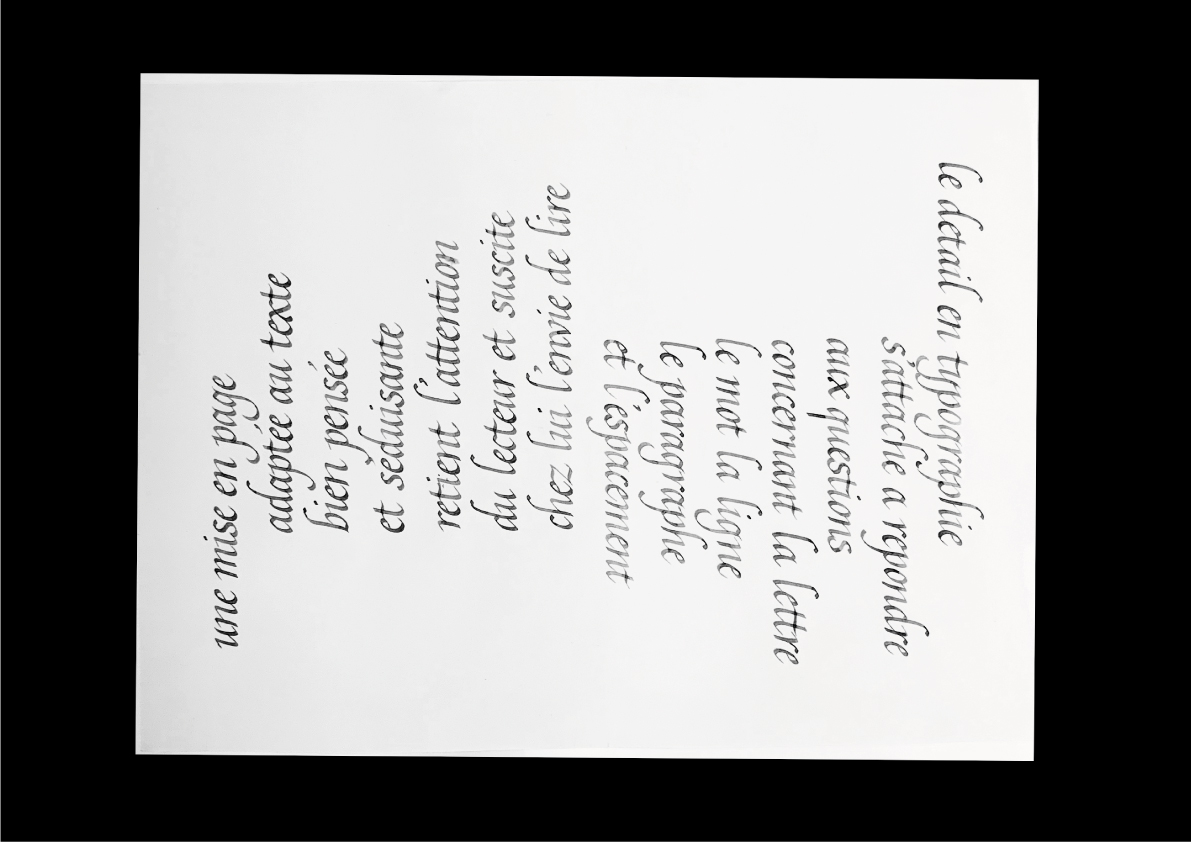 une mise en page
adaptée au texte
bien pensée
et séduisante
retient l'attention
du lecteur et suscite
chez lui l'envie de lire
le detail en typographie
s'attache a repondre
aux questions
concernant la lettre
le mot la ligne
le paragraphe
et l'espacement